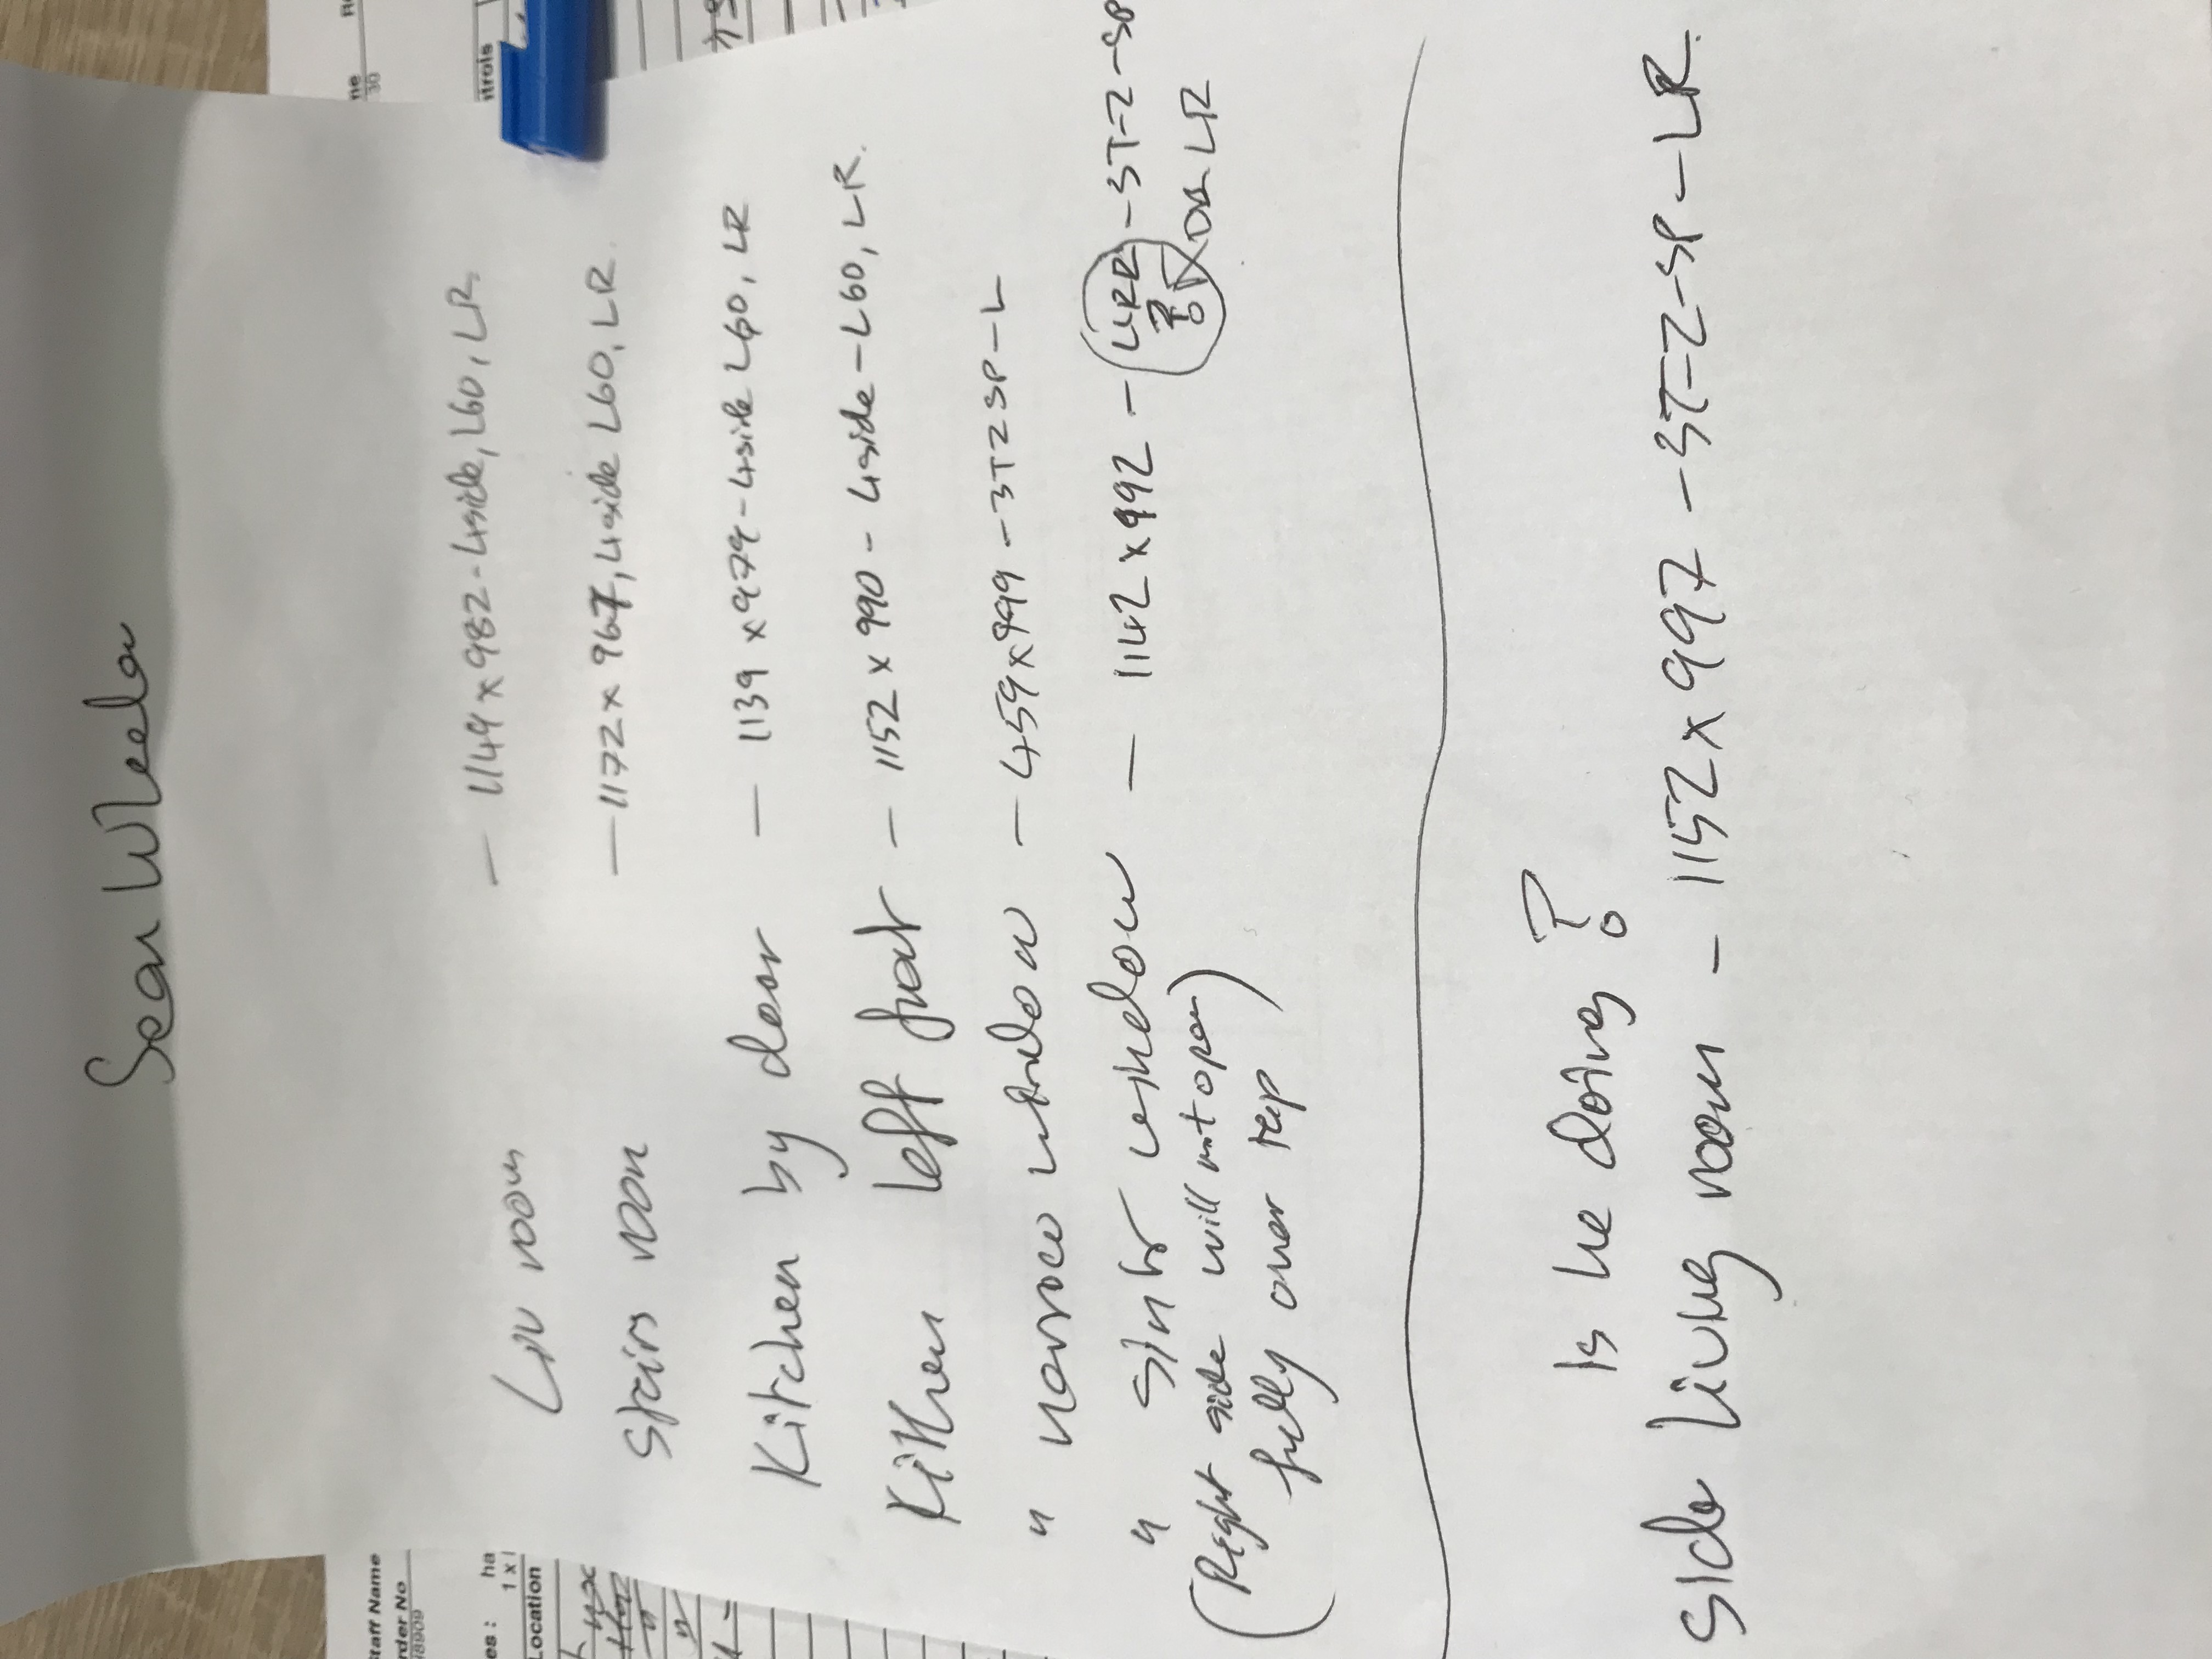 Sean Wheeler
Liv room — 1149 x 982 - 4side, L60, LR
Stairs room — 1172 x 967, 4side L60, LR.
Kitchen by door — 1139 x 979 - 4side L60, LR
Kitchen left front — 1152 x 990 - 4side - L60, LR.
" narrow window — 459 x 999 - 3T2SP - L
" Sink window — 1142 x 992 - LLRR - 3T-2-SP
? OR LR
(Right side will not open
fully over tap)
Is he doing?
Side Living room - 1152 x 997 - 3T-2-SP - LR.
Staff Name
rder No
18909
es: ha
1 x
Location
ne
30
itrols